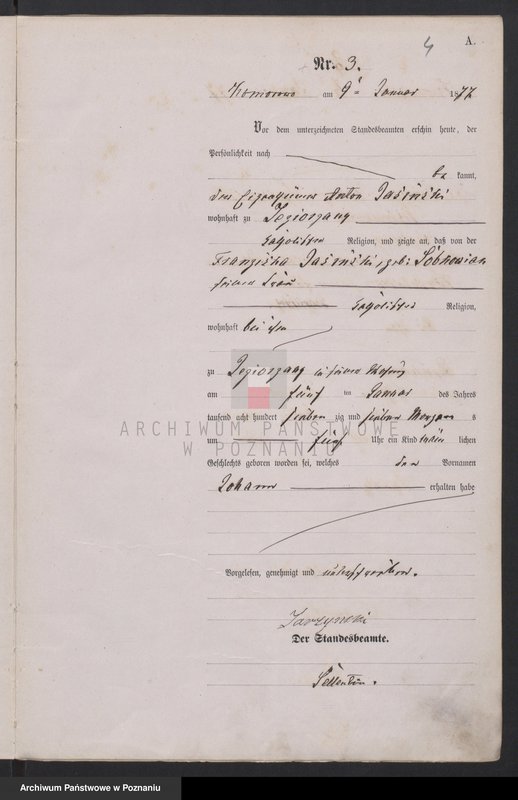 4 A.
Nr. 3.
am 9 Januar 1877
Vor dem unterzeichneten Standesbeamten erschien heute, der
Persönlichkeit nach
be kannt,
der Eigenthümer Anton
wohnhaft zu
katholischer Religion, und zeigte an, daß von der
Franziska geb:
seiner Frau
katholischer Religion,
wohnhaft bei ihm
zu in seiner Wohnung
am fünf ten Januar des Jahres
tausend acht hundert sieben zig und sieben Morgen s
um fünf Uhr ein Kind männ lichen
Geschlechts geboren worden sei, welches den Vornamen
Johann erhalten habe
Vorgelesen, genehmigt und unterschrieben.
Der Standesbeamte.
ARCHIWUM PAŃSTWOWE
W POZNANIU
Archiwum Państwowe w Poznaniu